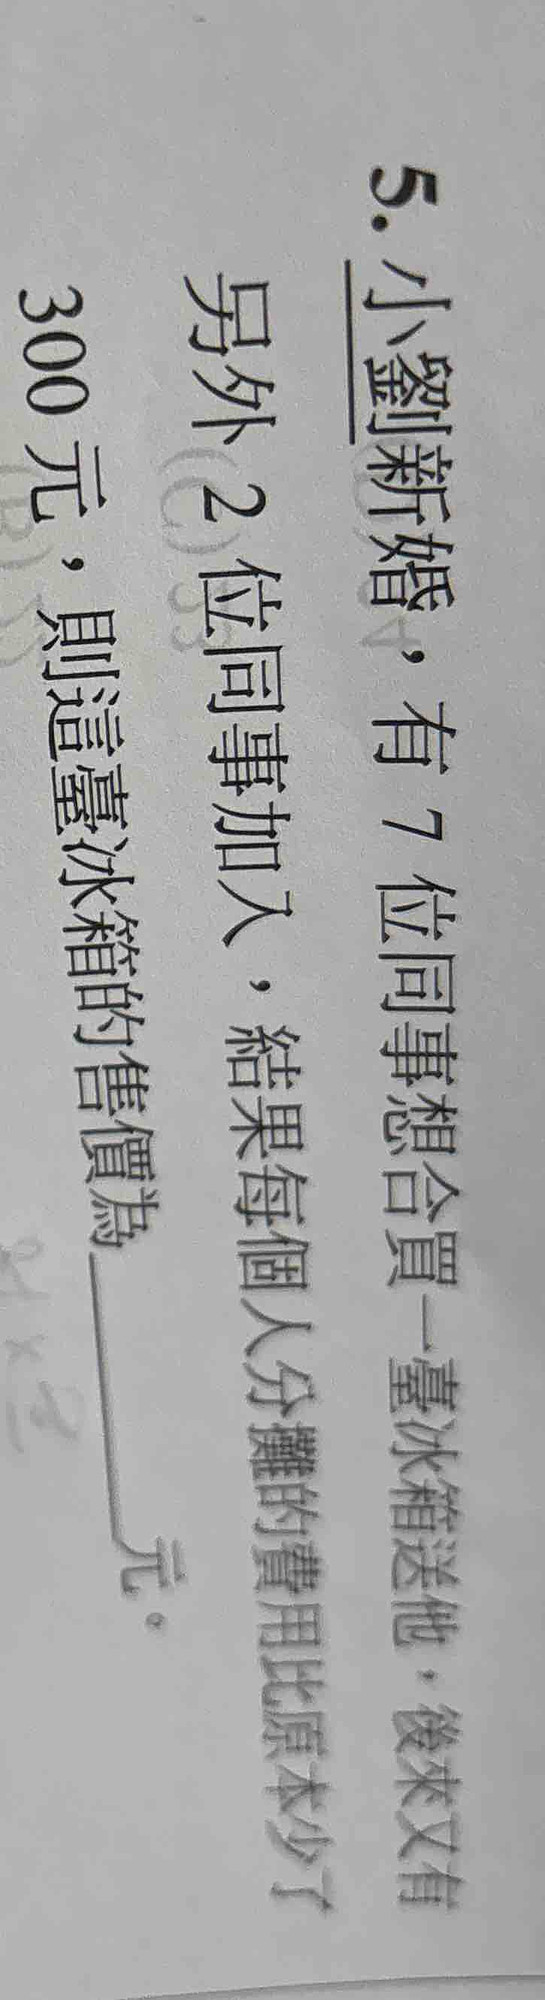 5. 小劉新婚，有 7 位同事想合買一臺冰箱送他，後來又有
另外 2 位同事加入，結果每個人分攤的費用比原本少了
300 元，則這臺冰箱的售價為＿＿＿＿元。